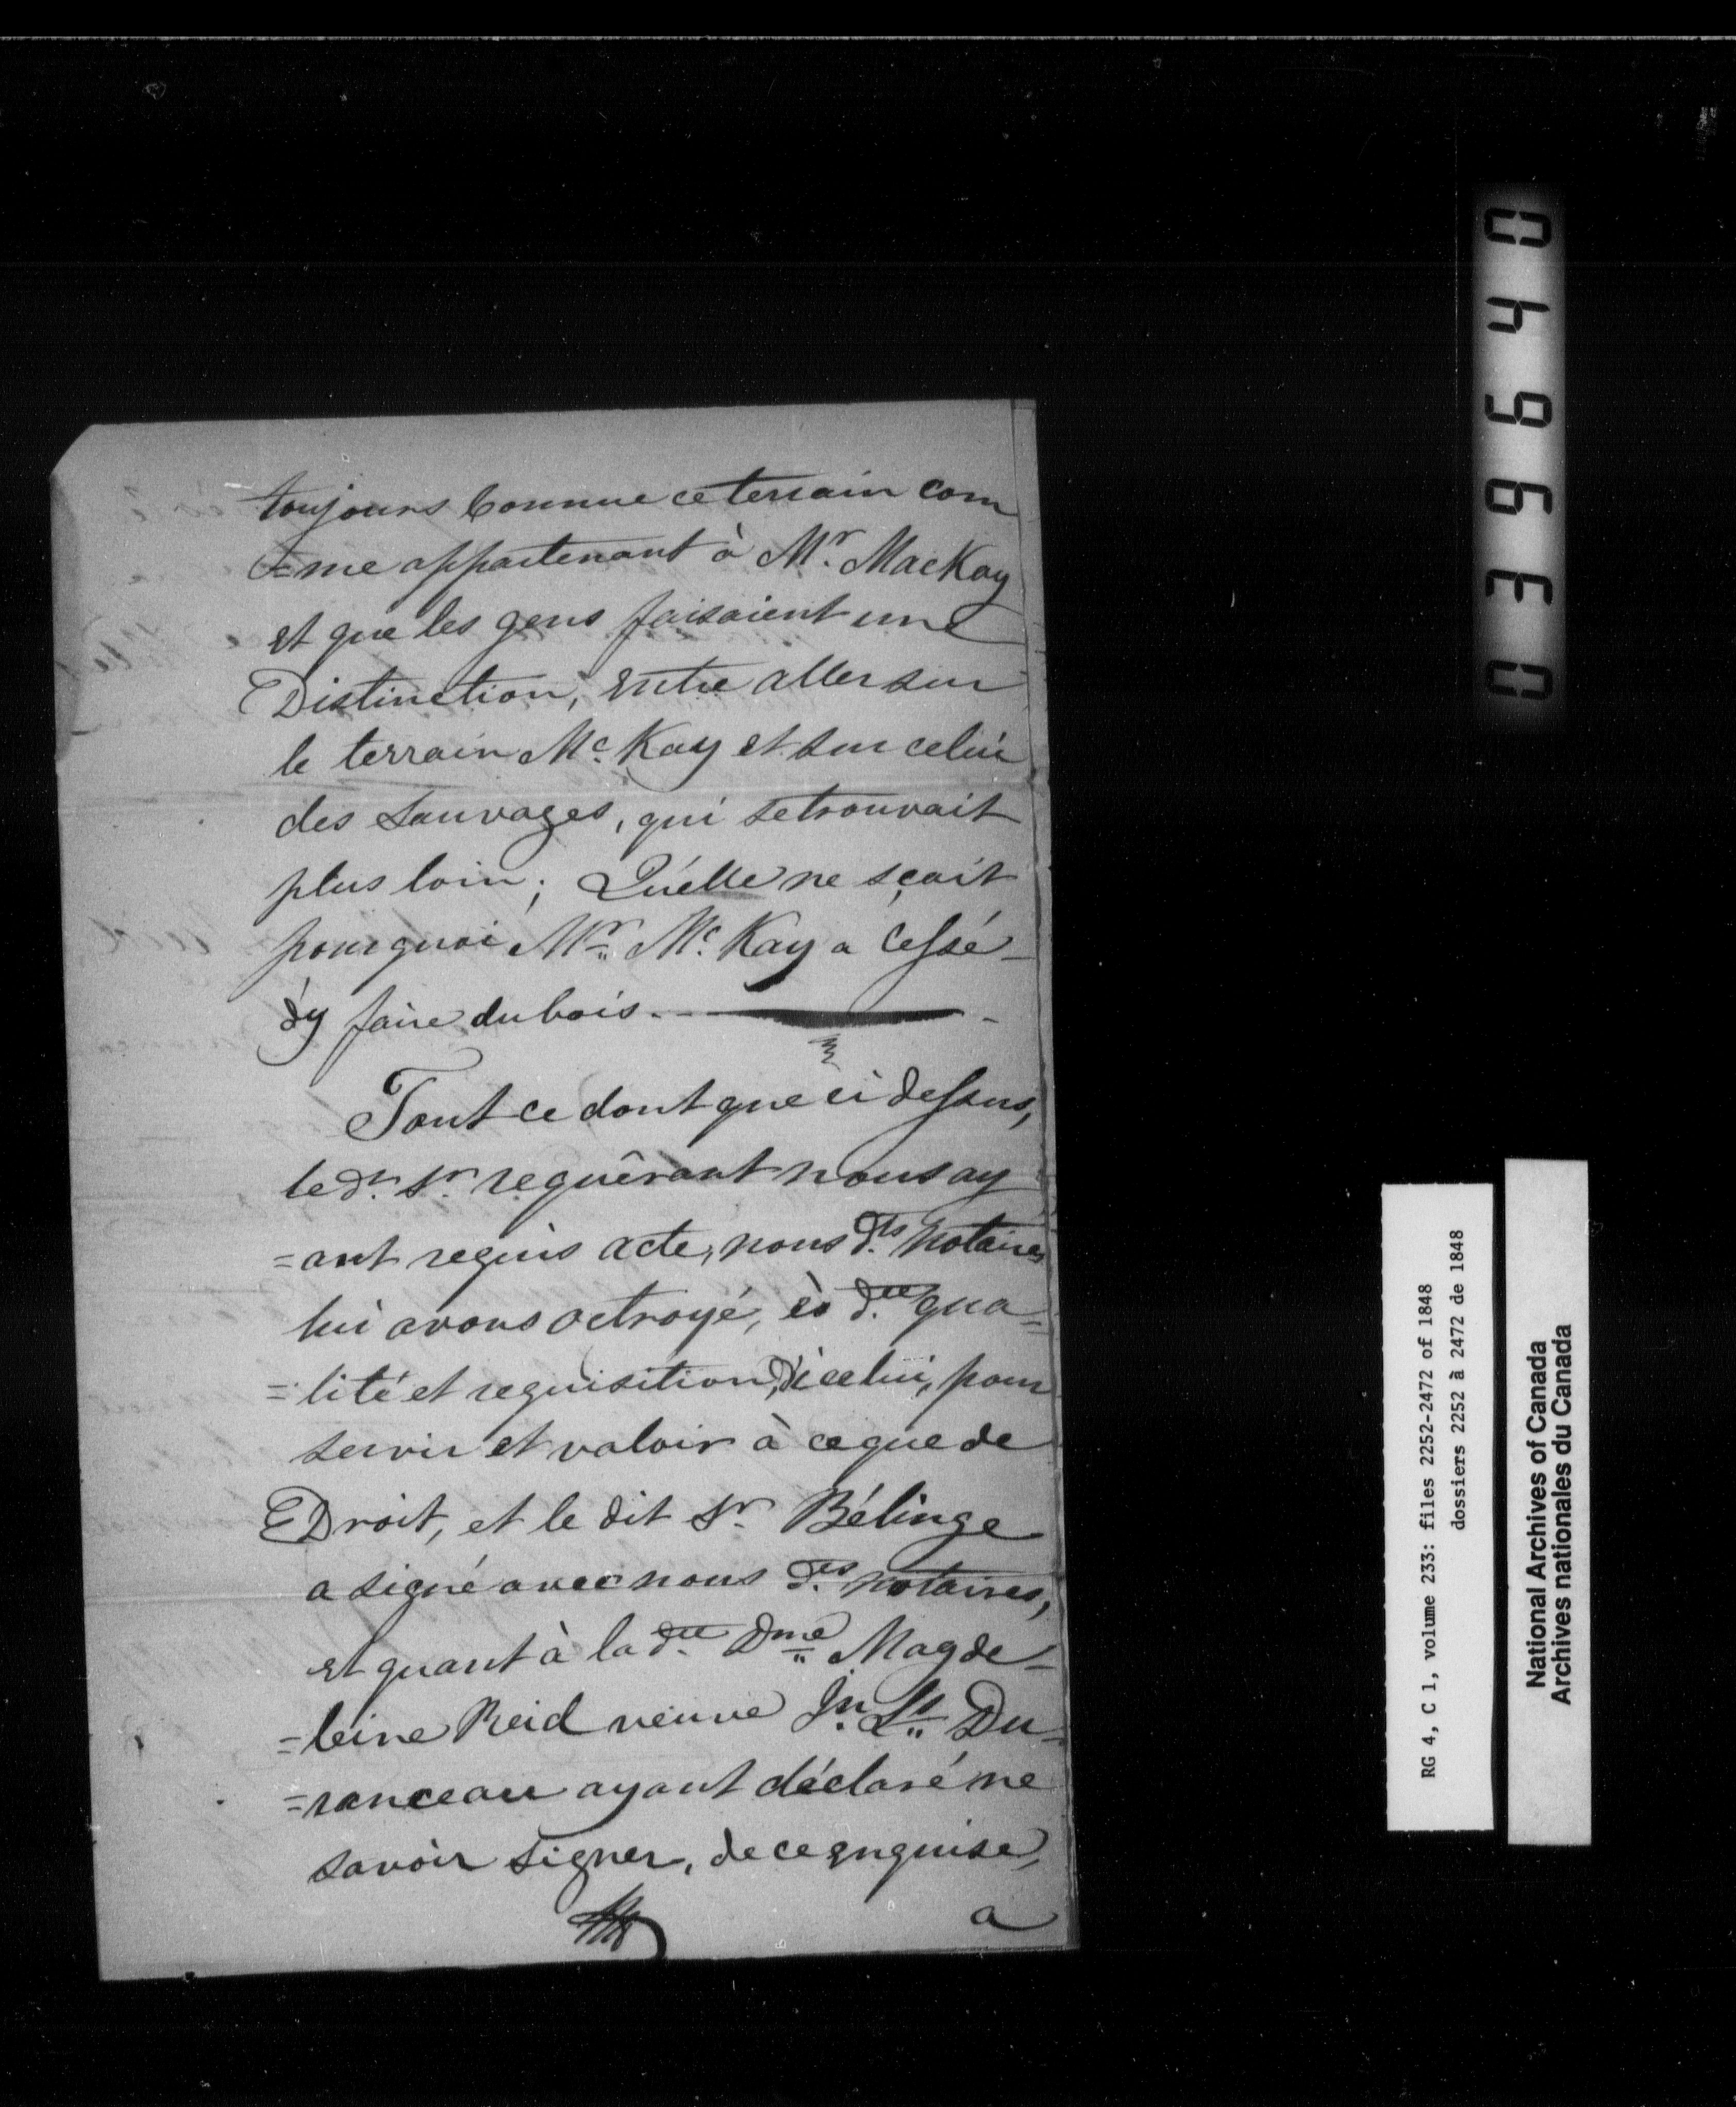 toujours Connue ce terrain com
=me appartenant à Mr. MacKay
et que les gens faisaient une
Distinction, entre aller sur
le terrain Mc. Kay et sur celui
des Sauvages, qui se trouvait
plus loin; Qu'elle ne sçait
pourquoi Mr. Mc. Kay a cessé
d'y faire du bois.
Tout ce dont que ci dessus,
le dt. Sr. requérant nous ay
=ant requis acte, nous dts. notaires
lui avons octroyé, ès dte. qua=
=lité et requisition d'icelui, pour
servir et valoir à ce que de
Droit, et le dit Sr. Bélinge
a signé avec nous dts. notaires,
et quant à la dte. Dme. Magde-
=leine Reid veuve Jn. Bt. Du=
=ranceau ayant déclaré ne
savoir signer, de ce enquise,
a
039640
RG 4, C 1, volume 233: files 2252-2472 of 1848
dossiers 2252 à 2472 de 1848
National Archives of Canada
Archives nationales du Canada